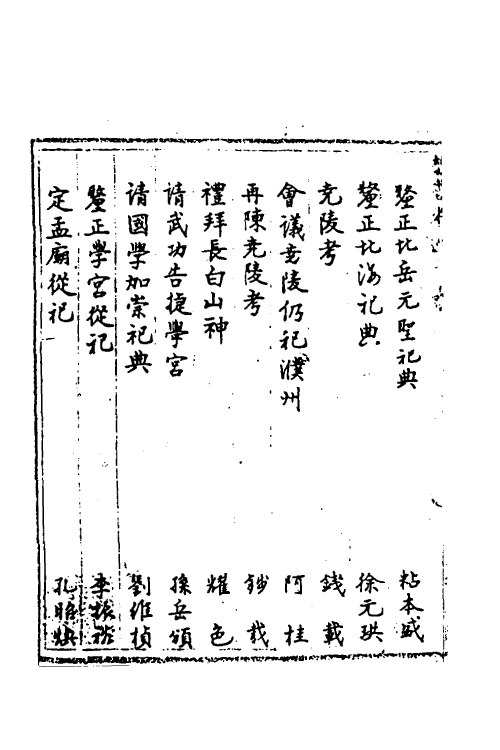 釐正北岳元聖祀典　粘本盛
釐正北海祀典　徐元珙
堯陵考　錢載
會議堯陵仍祀濮州　阿桂
再陳堯陵考　錢載
禮拜長白山神　耀色
请武功告捷學宮　孫岳頒
请國學加崇祀典　劉維楨
釐正學宮從祀　李振裕
定孟廟從祀　孔昭焕